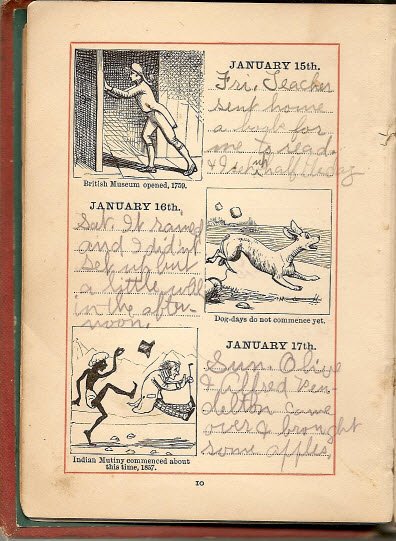 JANUARY 15th.
Fri. Teacher
sent home
a book for
me to read
& I sit up half the day
British Museum opened, 1759.
JANUARY 16th.
Sat. It rained
and I didn't
set up but
a little while
in the after-
noon.
Dog-days do not commence yet.
JANUARY 17th.
Sun. Olive
& Alfred Pen
delton came
over & brought
some apples.
Indian Mutiny commenced about
this time, 1857.
10